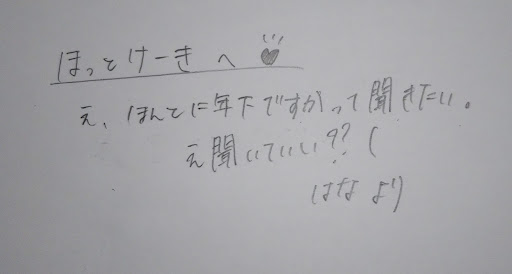 ほっとけーきへ
え、ほんとに年下ですかって聞きたい。
え聞いていい??(
はなより